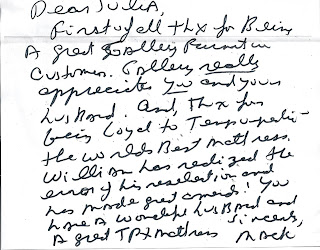 Dear Julia,
First of all thx for Being
A great Gallery Furniture
Customer. Gallery really
appreciates you and your
husband. And, thx for
being loyal to Tempurpedic
the worlds Best mattress.
William has realized the
error of his and
has made great amends! You
have a wonderful husband and
A great TPX mattress Sincerely,
Mack